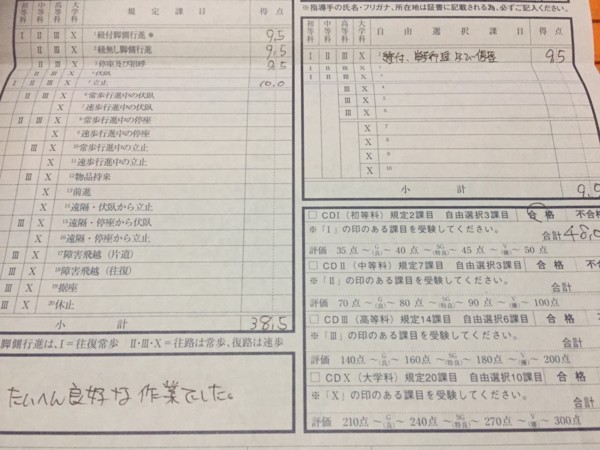 初等科 中等科 高等科 大学科 規定課目 得点
I II III X 1紐付脚側行進※ 9,5
II III X 2紐無し脚側行進 9,5
I II III X 3停座及び招呼 9,5
II III X 4伏臥
I II III X 5立止 10,0
II III X 6常歩行進中の伏臥
X 7速歩行進中の伏臥
II III X 8常歩行進中の停座
X 9速歩行進中の停座
III X 10常歩行進中の立止
X 11速歩行進中の立止
III X 12物品持来
X 13前進
X 14遠隔・伏臥から立止
III X 15遠隔・停座から伏臥
X 16遠隔・停座から立止
III X 17障害飛越(片道)
III X 18障害飛越(往復)
III X 19据座
III X 20休止
小計 38,5
脚側行進は、I=往復常歩 II・III・X=往路は常歩、復路は速歩
たいへん良好な作業でした。
※指導手の氏名・フリガナ、所在地は証書に記載される為、必ずご記入ください。
初等科 中等科 高等科 大学科 自由選択課目 得点
I II III X 1 9,5
I II III X 2
I II III X 3
III X 4
III X 5
III X 6
X 7
X 8
X 9
X 10
小計
□CDI(初等科)規定2課目 自由選択3課目 合格 不合格
※「I」の印のある課目を受験してください。 合計 48,0
評価 35点~G(良)~40点~SG(特良)~45点~V(優)~50点
□CDII(中等科)規定7課目 自由選択3課目 合格 不
※「II」の印のある課目を受験してください。 合計
評価 70点~G(良)~80点~SG(特良)~90点~V(優)~100点
□CDIII(高等科)規定14課目 自由選択6課目 合格
※「III」の印のある課目を受験してください。 合計
評価 140点~G(良)~160点~SG(特良)~180点~V(優)~200点
□CDX(大学科)規定20課目 自由選択10課目 合格
※「X」の印のある課目を受験してください。 合計
評価 210点~G(良)~240点~SG(特良)~270点~V(優)~300点